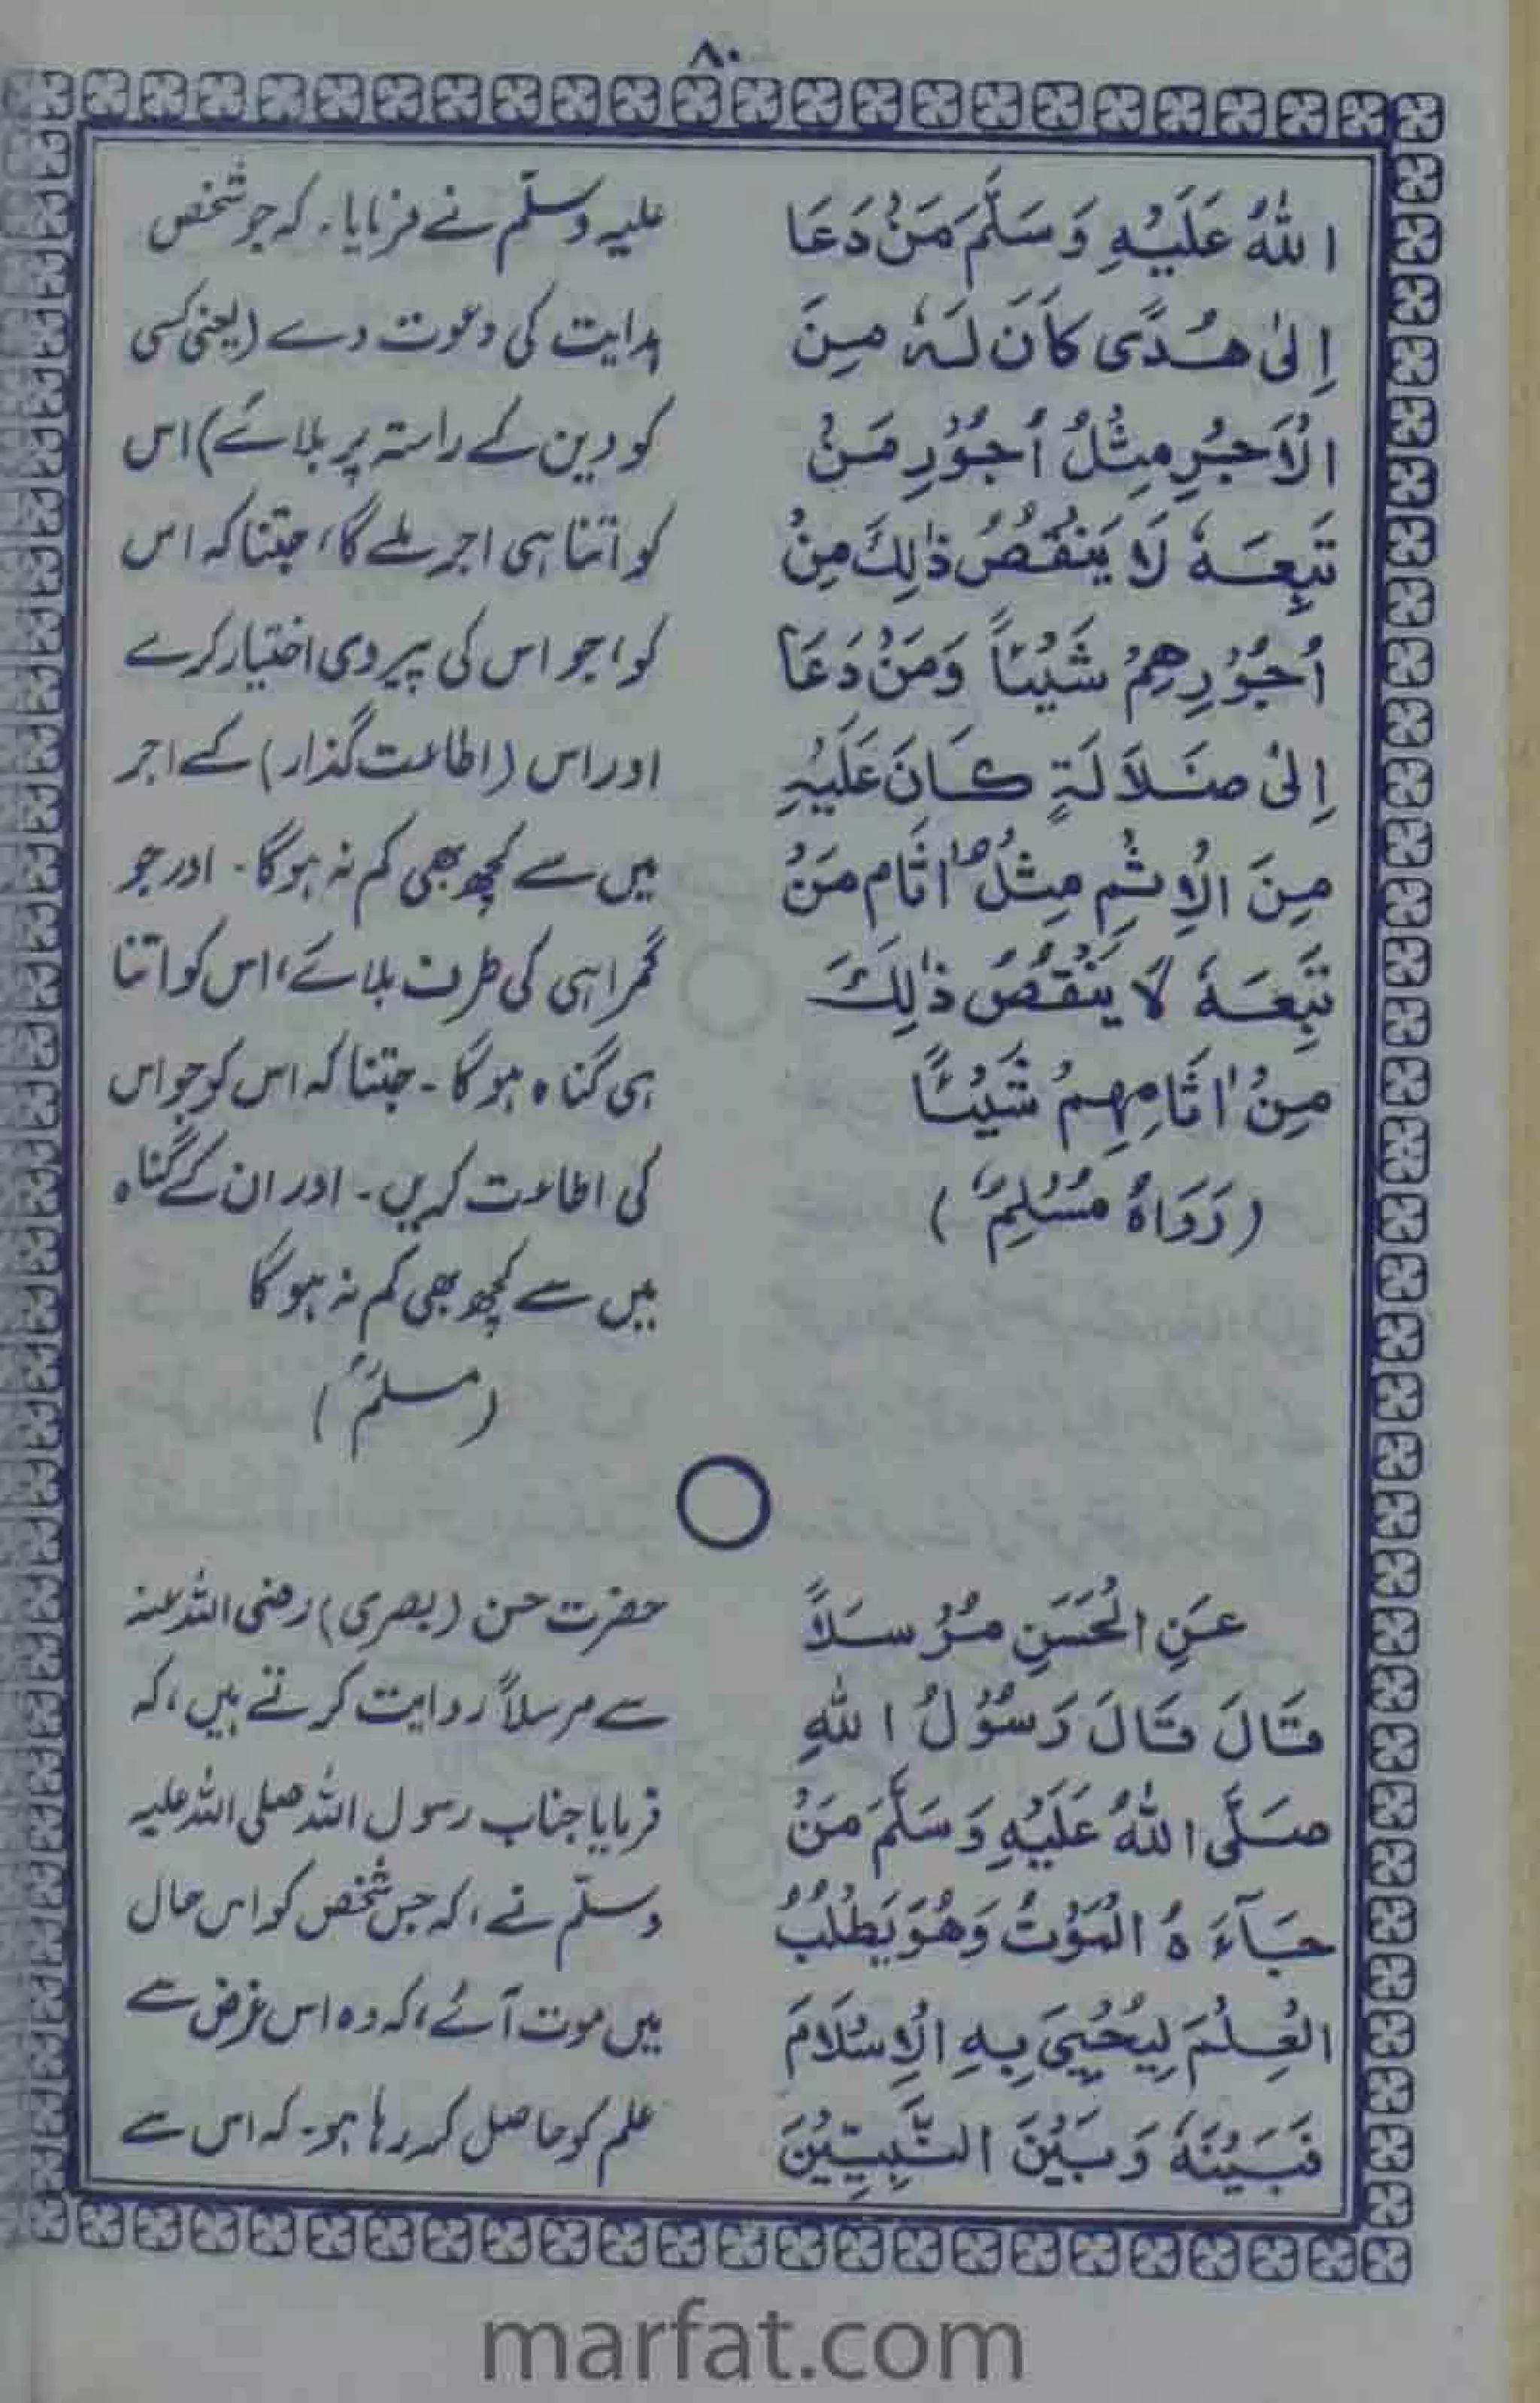 ۸۰
اللهُ عَلَيْهِ وَسَلَّمَ مَنْ دَعَا
إِلىٰ هُدًى كَانَ لَهٗ مِنَ
الْاَجْرِ مِثْلُ اُجُوْرِ مَنْ
تَبِعَهٗ لَا يَنْقُصُ ذٰلِكَ مِنْ
اُجُوْرِهِمْ شَيْئًا وَمَنْ دَعَا
اِلىٰ ضَلَالَةٍ كَانَ عَلَيْهِ
مِنَ الْاِثْمِ مِثْلُ اٰثَامِ مَنْ
تَبِعَهٗ لَا يَنْقُصُ ذٰلِكَ
مِنْ اٰثَامِهِمْ شَيْئًا
(رَوَاهُ مُسْلِمٌ)
علیہ وسلّم نے فرمایا۔ کہ جو شخص
ہدایت کی دعوت دے (یعنی کسی
کو دین کے راستہ پر بلائے) اس
کو اتنا ہی اجر ملے گا، جتنا کہ اس
کو، جو اس کی پیروی اختیار کرے
اور اس (اطاعت گذار) کے اجر
میں سے کچھ بھی کم نہ ہوگا۔ اور جو
گمراہی کی طرف بلائے، اس کو اتنا
ہی گناہ ہوگا۔ جتنا کہ اس کو جو اس
کی اطاعت کریں۔ اور ان کے گناہ
میں سے کچھ بھی کم نہ ہوگا
(مسلمؒ)
عَنِ الْحَسَنِ مُرْسَلًا
قَالَ قَالَ رَسُوْلُ اللهِ
صَلَّى اللهُ عَلَيْهِ وَسَلَّمَ مَنْ
جَآءَهُ الْمَوْتُ وَهُوَ يَطْلُبُ
الْعِلْمَ لِيُحْيِيَ بِهِ الْاِسْلَامَ
فَبَيْنَهٗ وَبَيْنَ النَّبِيِّيْنَ
حضرت حسن (بصری) رضی اللہ عنہ
سے مرسلاً روایت کرتے ہیں، کہ
فرمایا جناب رسول اللہ صلی اللہ علیہ
وسلّم نے، کہ جس شخص کو اس حال
میں موت آئے، کہ وہ اس غرض سے
علم کو حاصل کر رہا ہو۔ کہ اس سے
marfat.com